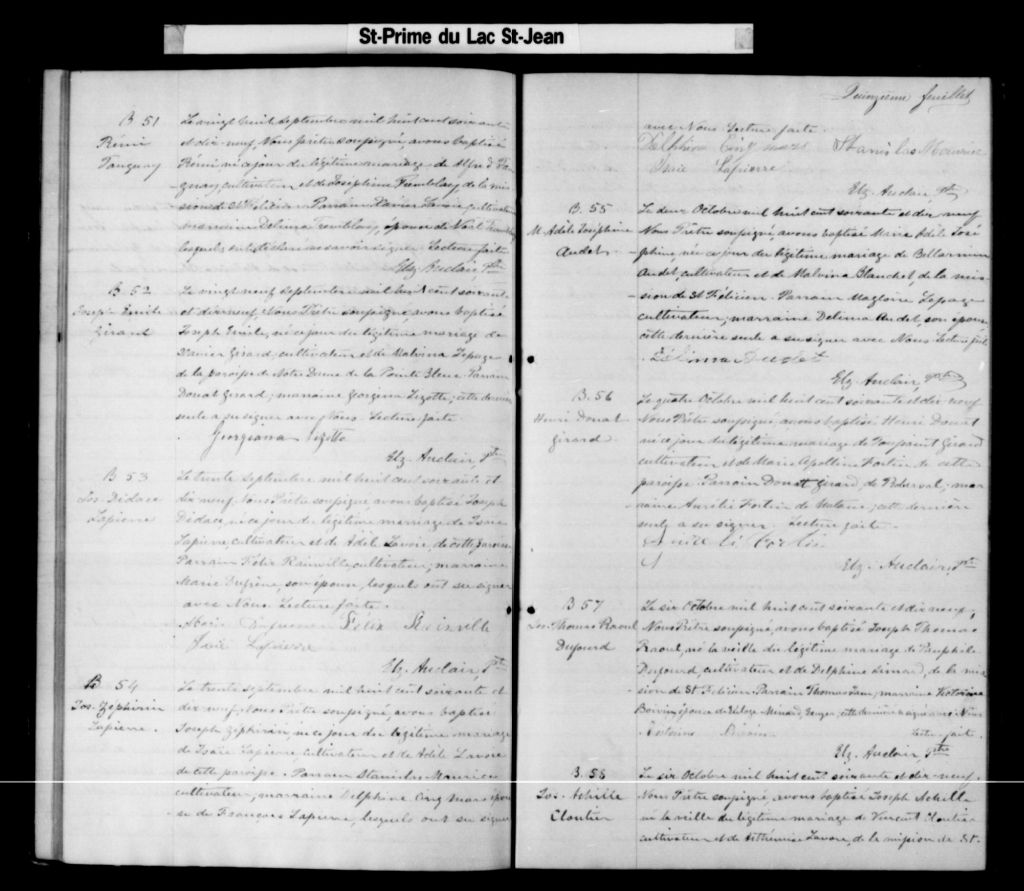 St-Prime du Lac St-Jean
B 51
Rémi
Tanguay
Le vingt huit septembre mil huit cent soixante
et dix-neuf, Nous prêtre soussigné, avons baptisé
Rémi né ce jour du légitime mariage de Alfred Tan
guay, cultivateur et de Joséphine Tremblay de la mis
sion de St Félicien Parrain Xavier Lavoie cultivateur
marraine Delima Tremblay, épouse de Noël
lesquels ont déclaré ne savoir signer Lecture faite
Elz. Auclair, Ptre
B 52
Joseph Emile
Girard
Le vingt neuf septembre mil huit cent soixante
et dix neuf Nous Prêtre soussigné avons baptisé
Joseph Emile, né ce jour du légitime mariage de
Xavier Girard, cultivateur et de Malvina Lepage
de la paroisse de Notre Dame de la Pointe Bleue Parrain
Donat Girard; marraine Georgina Lizotte; cette dernière
seule a su signer avec Nous Lecture faite
Georgiana Lizotte
Elz. Auclair, Ptre
B 53
Jos. Didace
Lapierre
Le trente septembre mil huit cent soixante et
dix neuf Nous Prêtre soussigné, avons baptisé Joseph
Didace, né ce jour du légitime marriage de Isaïe
Lapierre, cultivateur et de Adèle Lavoie, de cette paroisse
Parrain Félix Rainville cultivateur; marraine
Marie Dufresne, son épouse, lesquels ont su signer
avec Nous Lecture faite.
Marie Dufresne Félix Rainville
Isaïe Lapierre
Elz. Auclair, Ptre
B 54
Jos. Zéphirin
Lapierre.
Le trente septembre mil huit cent soixante et
dix neuf, Nous Prêtre soussigné, avons baptisé
Joseph Zéphirin, né ce jour du légitime mariage
de Isaïe Lapierre, cultivateur et de Adèle Lavoie
de cette paroisse. Parrain Stanislas Maurice
cultivateur, marraine Delphine Cinq Mars épou
se de François Lapierre, lesquels ont su signer
Quinzième feuillet
avec Nous Lecture faite.
Delphine Cinq mars Stanislas Maurice
Isaïe Lapierre
Elz. Auclair, Ptre
B. 55
M. Adèle Joséphine
Audet
Le deux Octobre mil huit cent soixante et dix neuf
Nous Prêtre soussigné, avons baptisé Marie Adèle José
phine, née ce jour du légitime mariage de Bellarmin
Audet, cultivateur et de Malvina Blanchet, de la mis
sion de St Félicien. Parrain Magloire Lepage
cultivateur; marraine Delima Audet, son épouse
cette dernière seule a su signer avec Nous Lecture faite
Délima Audet
Elz. Auclair, Ptre
B. 56
Henri Donat
Girard
Le quatre Octobre mil huit cent soixante et dix neuf
Nous Prêtre soussigné, avons baptisé Henri Donat
né ce jour du légitime mariage de Toussaint Girard
cultivateur et de Marie Apolline Fortin de cette
paroisse Parrain Donat Girard, de Roberval; mar
raine Aurélie Fortin de Matane; cette dernière
seule a su signer Lecture faite
Aurélie Fortin
Elz. Auclair, Ptre
B 57
Jos. Thomas Raoul
Dufourd
Le six Octobre mil huit cent soixante et dix neuf,
Nous Prêtre soussigné, avons baptisé Joseph Thomas
Raoul, né la veille du légitime mariage de Pamphile
Dufourd, cultivateur et de Delphine Simard, de la mis
sion de St Félicien. Parrain Thomas; marraine Victorine
Boivin épouse de Eloge Ménard; cette dernière a signé avec Nous
Lecture faite.
Boivin
Elz. Auclair, Ptre
B. 58
Jos. Achille
Cloutier
Le six Octobre mil huit cent soixante et dix-neuf,
Nous Prêtre soussigné, avons baptisé Joseph Achille
né la veille du légitime mariage de Vincent Cloutier
cultivateur et de Arthémise Lavoie, de la mission de St-